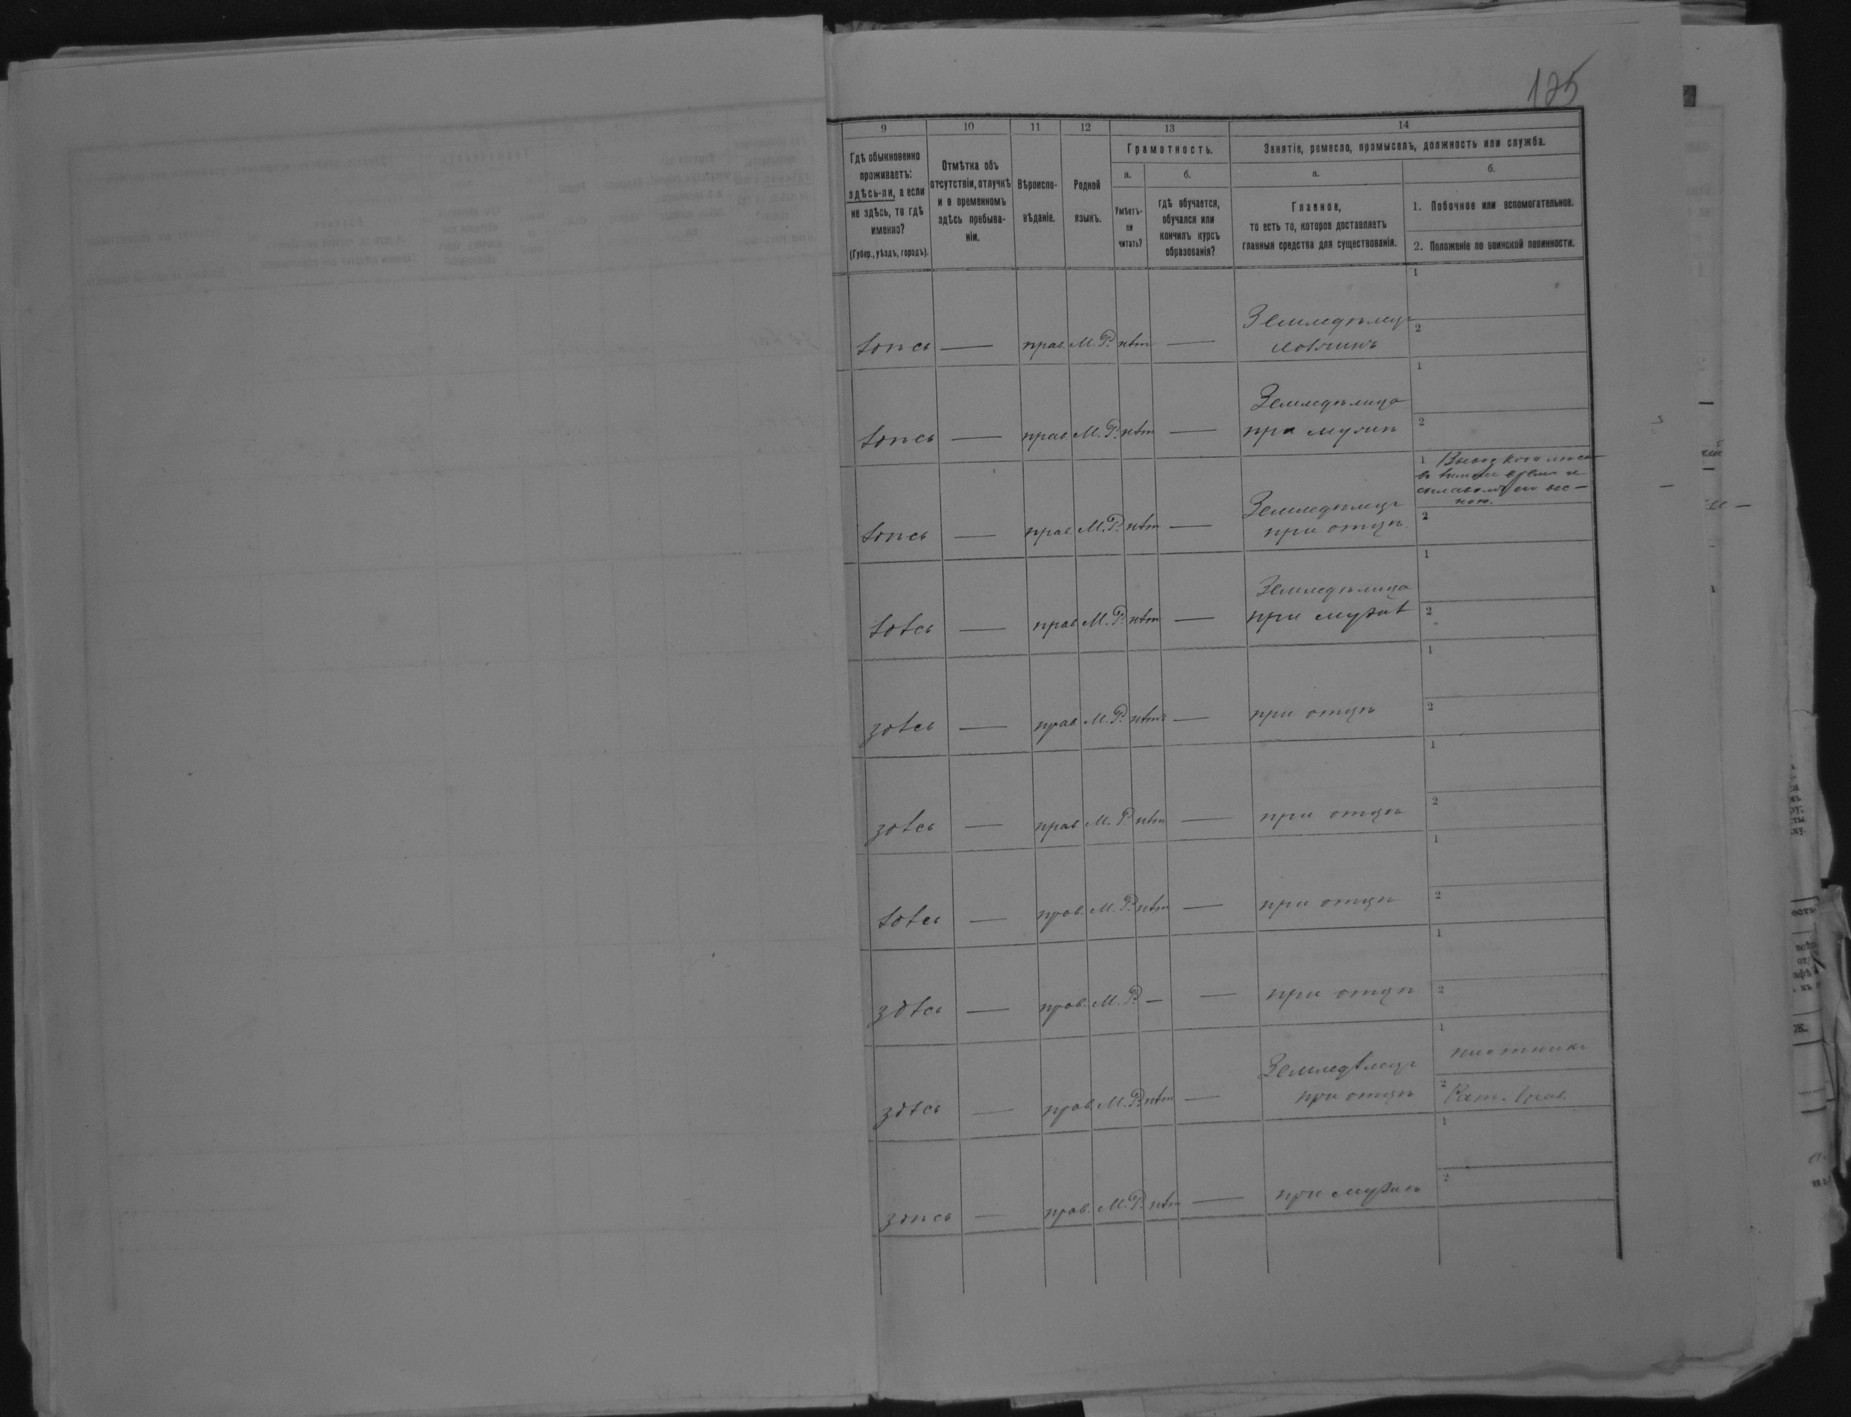 125
9 10 11 12 13 14
Гдѣ обыкновенно проживаетъ: здѣсь-ли, а если не здѣсь, то гдѣ именно? (Губер., уѣздъ, городъ).
Отмѣтка объ отсутствіи, отлучкѣ и о временномъ здѣсь пребываніи.
Вѣроисповѣданіе.
Родной языкъ.
Грамотность.
а. Умѣетъ-ли читать?
б. гдѣ обучается, обучался или кончилъ курсъ образованія?
Занятіе, ремесло, промыселъ, должность или служба.
а. Главное, то есть то, которое доставляетъ главныя средства для существованія.
б.
1. Побочное или вспомогательное.
2. Положеніе по воинской повинности.
здѣсь — прав. М. Р. нѣт — Земледѣлец 1
2
здѣсь — прав М. Р. нѣт — Земледѣлица при мужѣ 1
2
здѣсь — прав. М. Р. нѣт — Земледѣлец при отцѣ 1
2
здѣсь — прав М. Р. нѣт — Земледѣлица при мужѣ 1
2
здѣсь — прав М. Р. нѣт — при отцѣ 1
2
здѣсь — прав М. Р. нѣт — при отцѣ 1
2
здѣсь — прав. М. Р. нѣт — при отцѣ 1
2
здѣсь — прав. М. Р. — — при отцѣ 1
2
здѣсь — прав. М. Р. нѣт — Земледѣлец при отцѣ 1 плотник
2
здѣсь — прав. М. Р. нѣт — при мужѣ 1
2